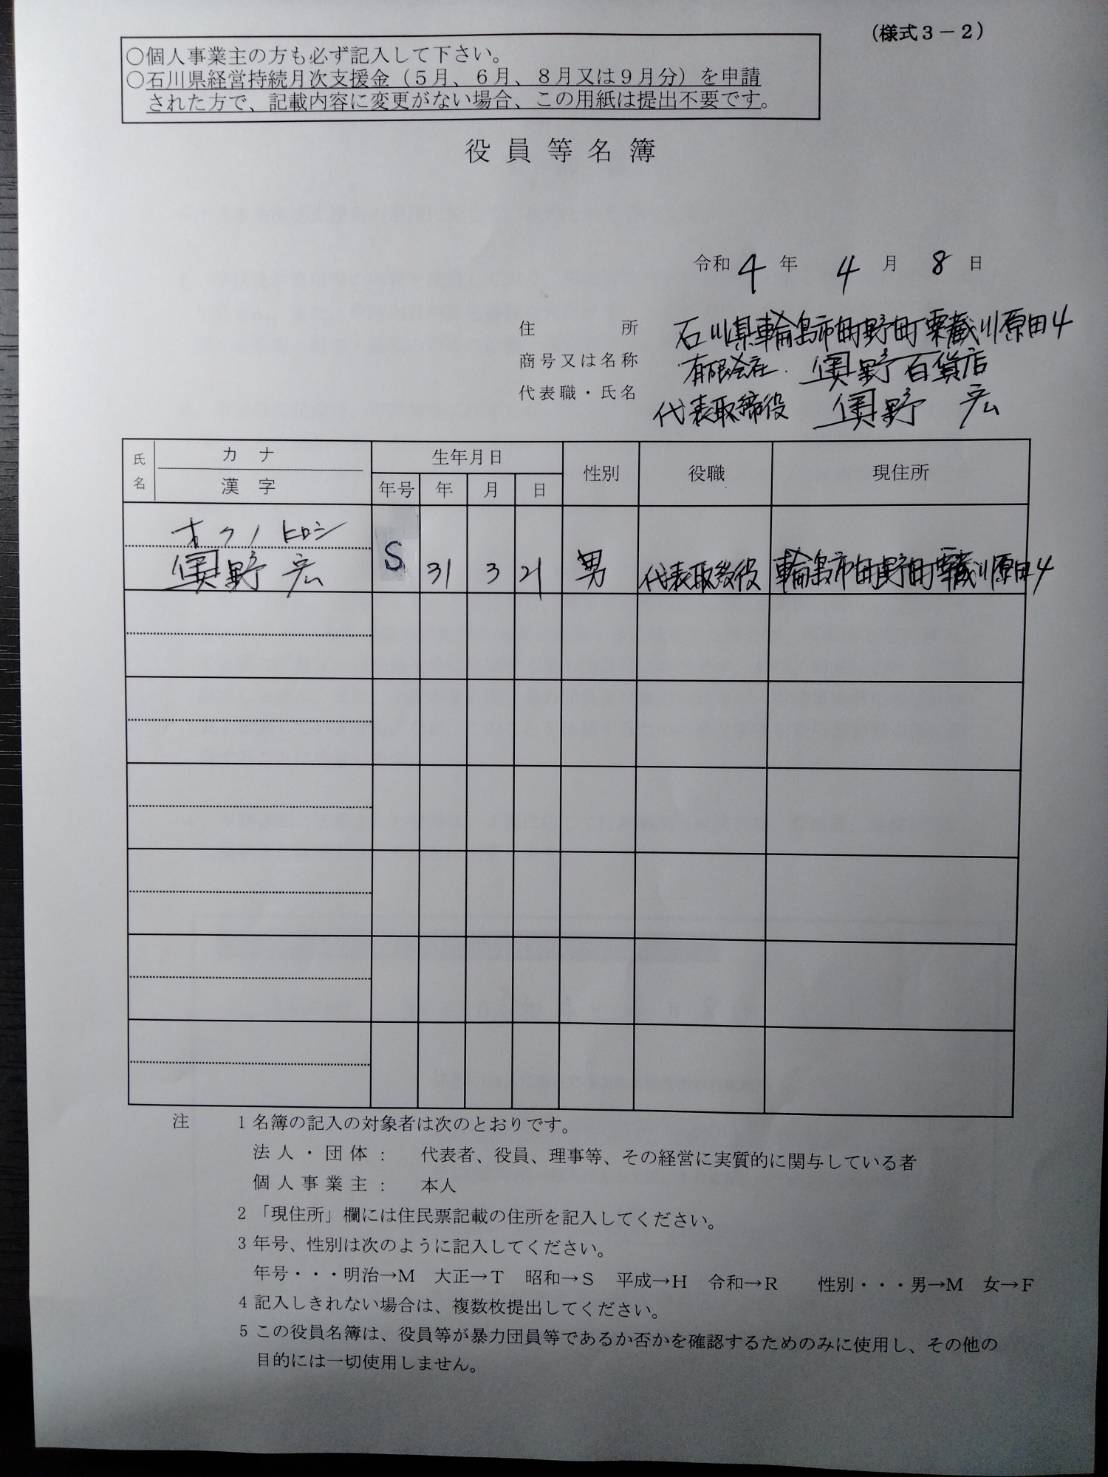 （様式３－２）
○個人事業主の方も必ず記入して下さい。
○石川県経営持続月次支援金（５月、６月、８月又は９月分）を申請
された方で、記載内容に変更がない場合、この用紙は提出不要です。
役員等名簿
令和 4 年 4 月 8 日
住所 石川県輪島市町野町粟蔵川原田4
商号又は名称 有限会社 奥野百貨店
代表職・氏名 代表取締役 奥野 宏
氏名 カナ 漢字 生年月日 年号 年 月 日 性別 役職 現住所
オクノ ヒロシ
奥野 宏 S 31 3 21 男 代表取締役 輪島市町野町粟蔵川原田4
注 1 名簿の記入の対象者は次のとおりです。
法人・団体： 代表者、役員、理事等、その経営に実質的に関与している者
個人事業主： 本人
2 「現住所」欄には住民票記載の住所を記入してください。
3 年号、性別は次のように記入してください。
年号・・・明治→M 大正→T 昭和→S 平成→H 令和→R 性別・・・男→M 女→F
4 記入しきれない場合は、複数枚提出してください。
5 この役員名簿は、役員等が暴力団員等であるか否かを確認するためのみに使用し、その他の
目的には一切使用しません。